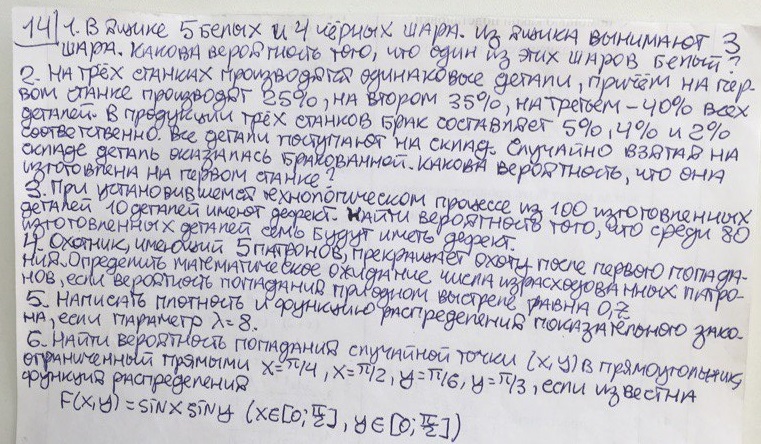 14 1. В ящике 5 белых и 4 чёрных шара. Из ящика вынимают 3
шара. Какова вероятность того, что один из этих шаров белый?
2. На трёх станках производятся одинаковые детали, причём на пер-
вом станке производят 25%, на втором 35%, на третьем - 40% всех
деталей. В продукции трёх станков брак составляет 5%, 4% и 2%
соответственно. Все детали поступают на склад. Случайно взятая на
складе деталь оказалась бракованной. Какова вероятность, что она
изготовлена на первом станке?
3. При установившемся технологическом процессе из 100 изготовленных
деталей 10 деталей имеют дефект. Найти вероятность того, что среди 80
изготовленных деталей семь будут иметь дефект.
4. Охотник, имеющий 5 патронов, прекращает охоту после первого попада-
ния. Определить математическое ожидание числа израсходованных патро-
нов, если вероятность попадания при одном выстреле равна 0,7
5. Написать плотность и функцию распределения показательного зако-
на, если параметр λ = 8.
6. Найти вероятность попадания случайной точки (x,y) в прямоугольник,
ограниченный прямыми x=π/4, x=π/2, y=π/6, y=π/3, если известна
функция распределения
F(x,y) = sinx siny (x∈[0;π/2], y∈[0;π/2])